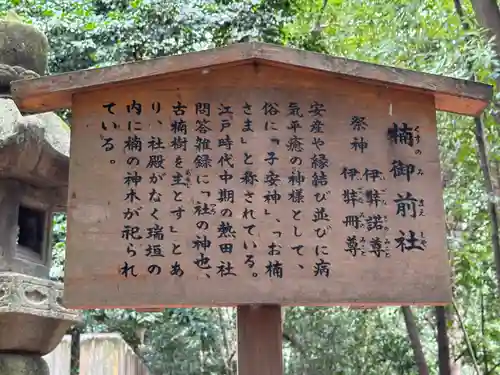 楠御前社
くすのみまえしゃ
祭神 伊弉諾尊
いざなぎのみこと
伊弉冊尊
いざなみのみこと
安産や縁結び並びに病
気平癒の神様として、
俗に「子安神」、「お楠
さま」と称されている。
江戸時代中期の熱田社
問答雑録に「社の神也、
古楠樹を主とす」とあ
り、社殿がなく瑞垣の
内に楠の神木が祀られ
ている。